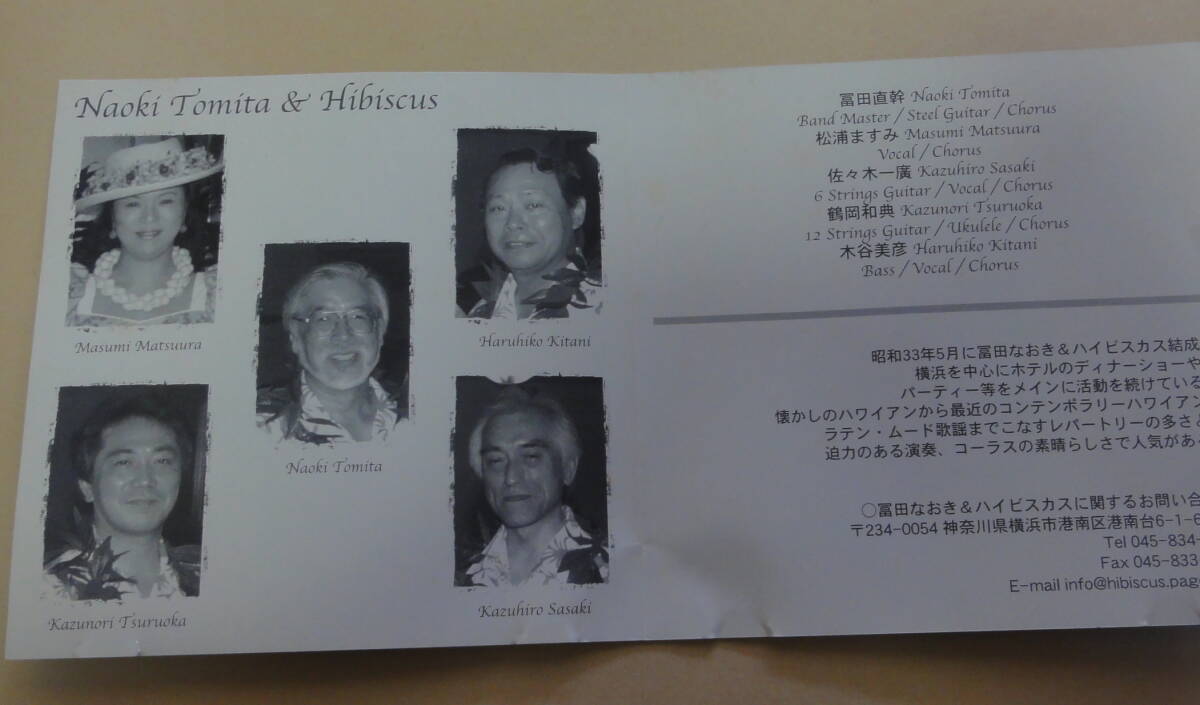 Naoki Tomita & Hibiscus
Masumi Matsuura
Haruhiko Kitani
Naoki Tomita
Kazunori Tsuruoka
Kazuhiro Sasaki
冨田直幹 Naoki Tomita
Band Master / Steel Guitar / Chorus
松浦ますみ Masumi Matsuura
Vocal / Chorus
佐々木一廣 Kazuhiro Sasaki
6 Strings Guitar / Vocal / Chorus
鶴岡和典 Kazunori Tsuruoka
12 Strings Guitar / Ukulele / Chorus
木谷美彦 Haruhiko Kitani
Bass / Vocal / Chorus
昭和33年5月に冨田なおき&ハイビスカス結成
横浜を中心にホテルのディナーショーや
パーティー等をメインに活動を続けている
懐かしのハワイアンから最近のコンテンポラリーハワイアン
ラテン・ムード歌謡までこなすレパートリーの多さと
迫力のある演奏、コーラスの素晴らしさで人気がある
○冨田なおき&ハイビスカスに関するお問い合
〒234-0054 神奈川県横浜市港南区港南台6-1-6
Tel 045-834-
Fax 045-833
E-mail info@hibiscus.page